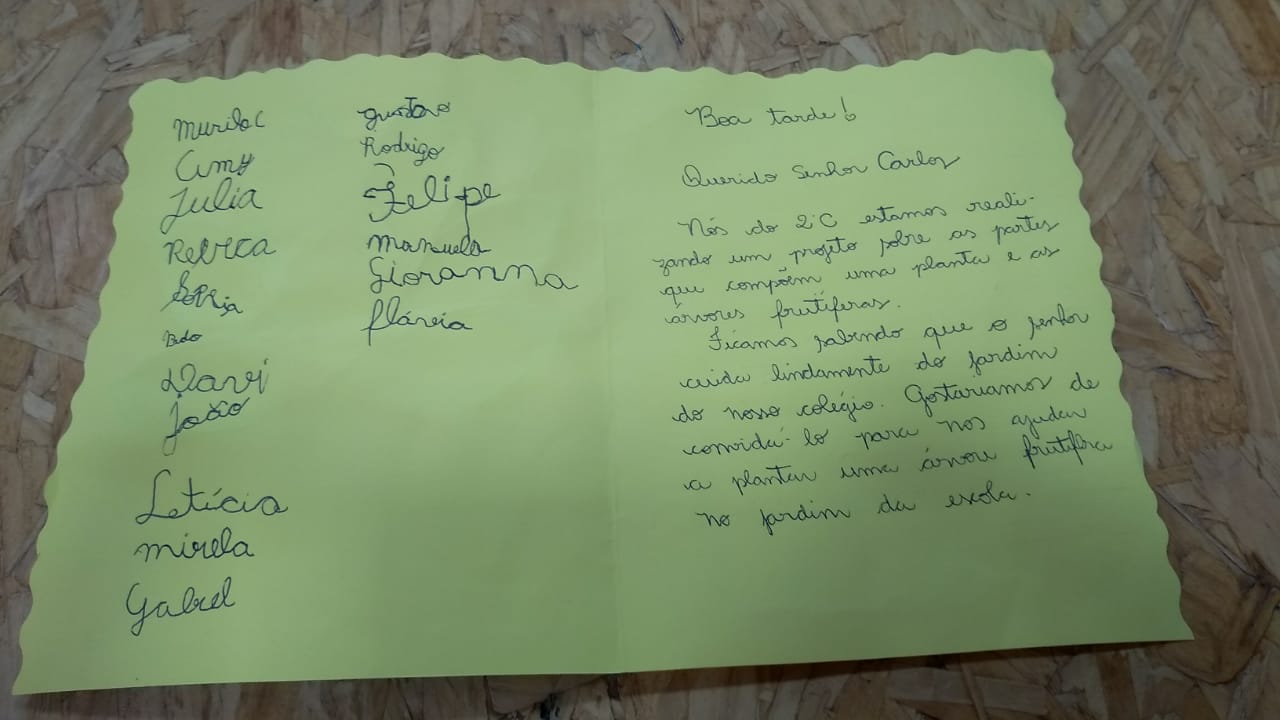 Murilo C
Amy
Julia
Rebeca
Sophia
Davi
João
Letícia
mirela
Gabriel
Gustavo
Rodrigo
Felipe
Manuela
Giovanna
flávia
Boa tarde!
Querido Senhor Carlos
Nós do 2°C estamos reali-
zando um projeto sobre as partes
que compõem uma planta e as
árvores frutíferas.
Ficamos sabendo que o senhor
cuida lindamente do jardim
do nosso colégio. Gostaríamos de
convidá-lo para nos ajudar
a plantar uma árvore frutífera
no jardim da escola.